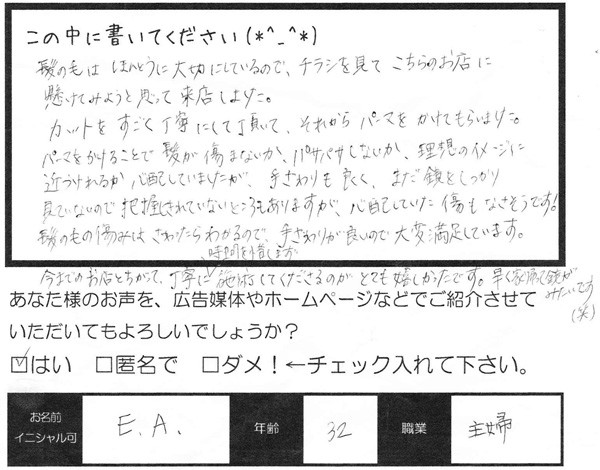 この中に書いてください(*^_^*)
髪の毛は ほんとうに大切にしているので、チラシを見て こちらのお店に
懸けてみようと思って来店しました。
カットを すごく丁寧にして頂いて、それから パーマを かけてもらいました。
パーマをかけることで 髪が 傷まないか、パサパサしないか、理想のイメージに
近づけれるか 心配していましたが、手ざわりも 良く、まだ 鏡をしっかり
見ていないので 把握されていないところもありますが、心配していた 傷も なさそうです!
髪のもの傷みは さわったらわかるので、手ざわりが良いので 大変満足しています。
時間を惜しまず
今までのお店とちがって、丁寧に 施術してくださるのが とても 嬉しかったです。早く家帰って鏡が
みたいです
(笑)
あなた様のお声を、広告媒体やホームページなどでご紹介させて
いただいてもよろしいでしょうか?
☑はい □匿名で □ダメ!←チェック入れて下さい。
お名前 イニシャル可 E.A. 年齢 32 職業 主婦